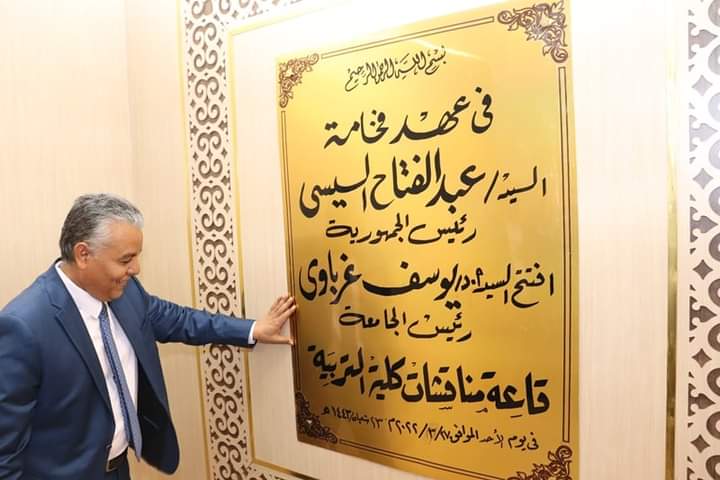 بسم الله الرحمن الرحيم
فى عهد فخامة
السيد/ عبد الفتاح السيسى
رئيس الجمهورية
افتتح السيد أ.د/ يوسف غرباوى
رئيس الجامعة
قاعة مناقشات كلية التربية
فى يوم الأحد الموافق ٢٠٢٢/٣/١٧م ٢٣ شعبان ١٤٤٣هـ